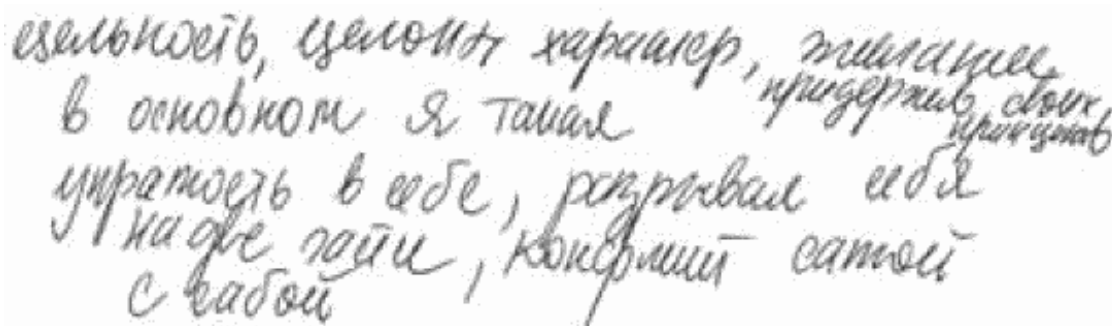 цельность, целостн характер, желание
придержив своих
принципов
в основном я такая
упрямость в себе, разрывал себя
на две части, конфликт самой
с сабой